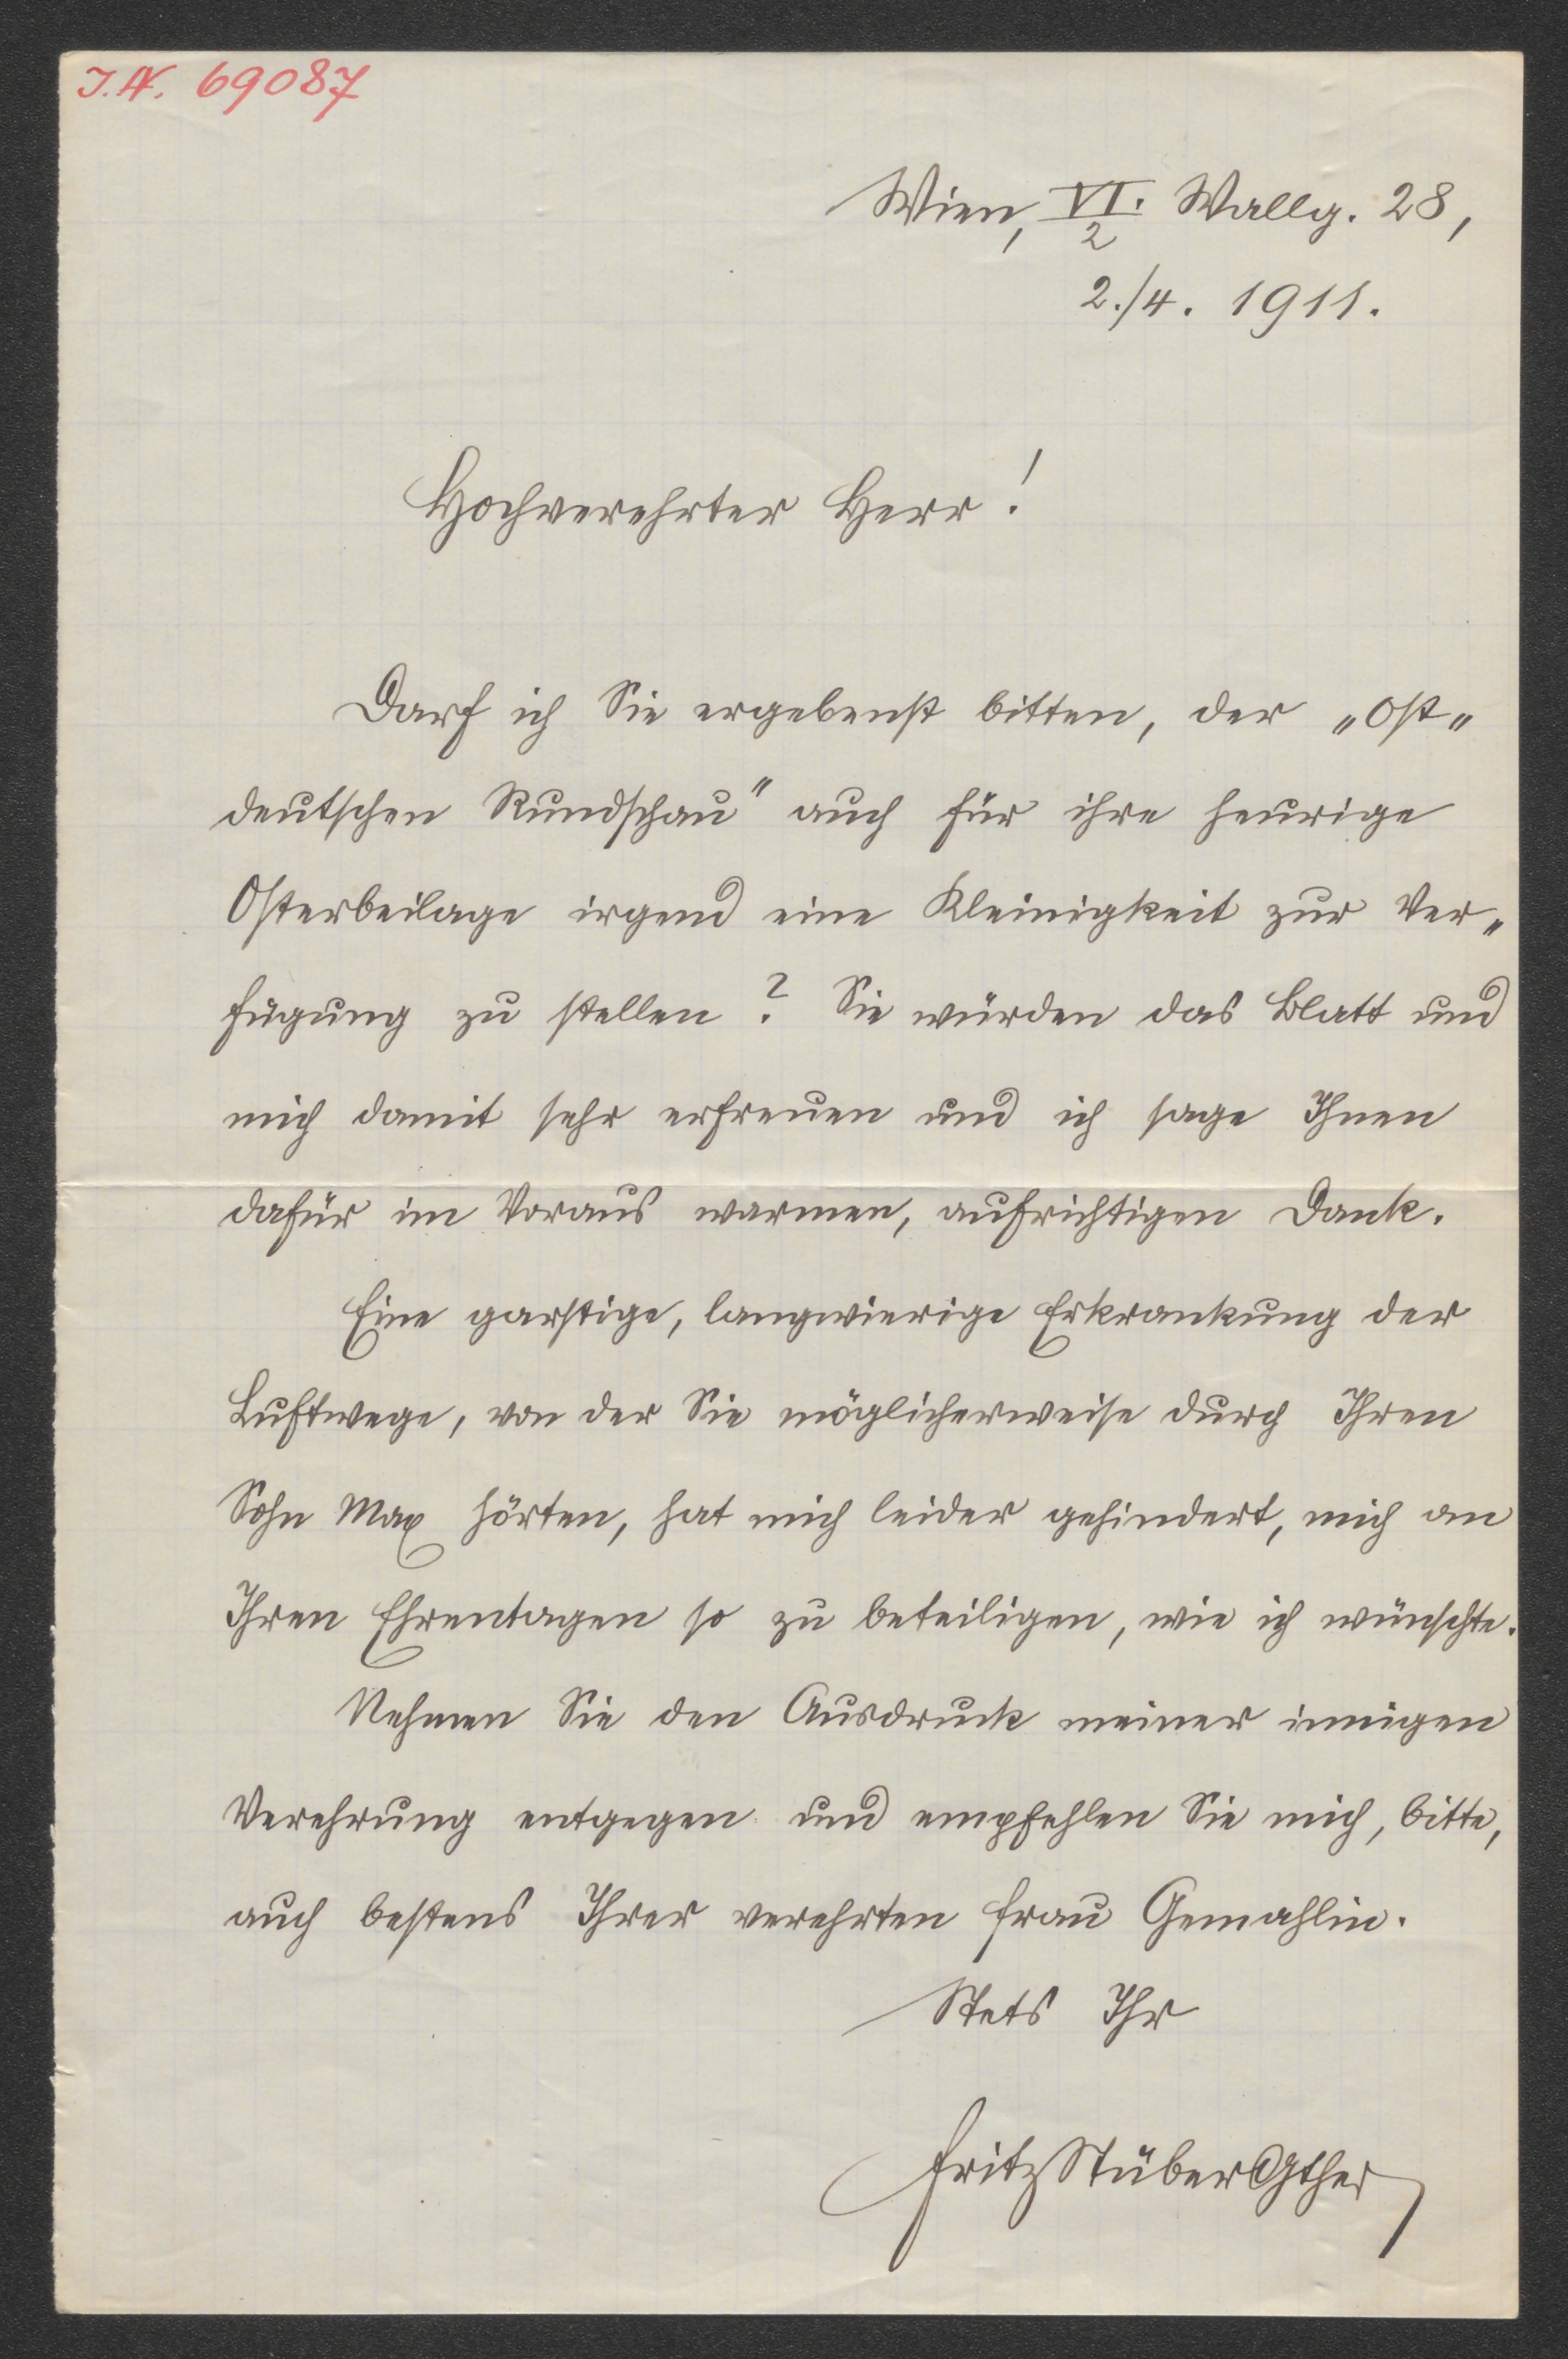 I.N. 69087
Wien, VI./2 Wallg. 28,
2./4. 1911.
Hochverehrter Herr!
Darf ich Sie ergebenst bitten, der „Ost„
deutschen Rundschau" auch für ihre heurige
Osterbeilage irgend eine Kleinigkeit zur Ver„
fügung zu stellen? Sie würden das Blatt und
mich damit sehr erfreuen und ich sage Ihnen
dafür im Voraus warmen, aufrichtigen Dank.
Eine garstige, langwierige Erkrankung der
Luftwege, von der Sie möglicherweise durch Ihren
Sohn Max hörten, hat mich leider gehindert, mich an
Ihren Ehrentagen so zu beteiligen, wie ich wünschte.
Nehmen Sie den Ausdruck meiner innigen
Verehrung entgegen und empfehlen Sie mich, bitte,
auch bestens Ihrer verehrten Frau Gemahlin.
Stets Ihr
Fritz Stüber Gther